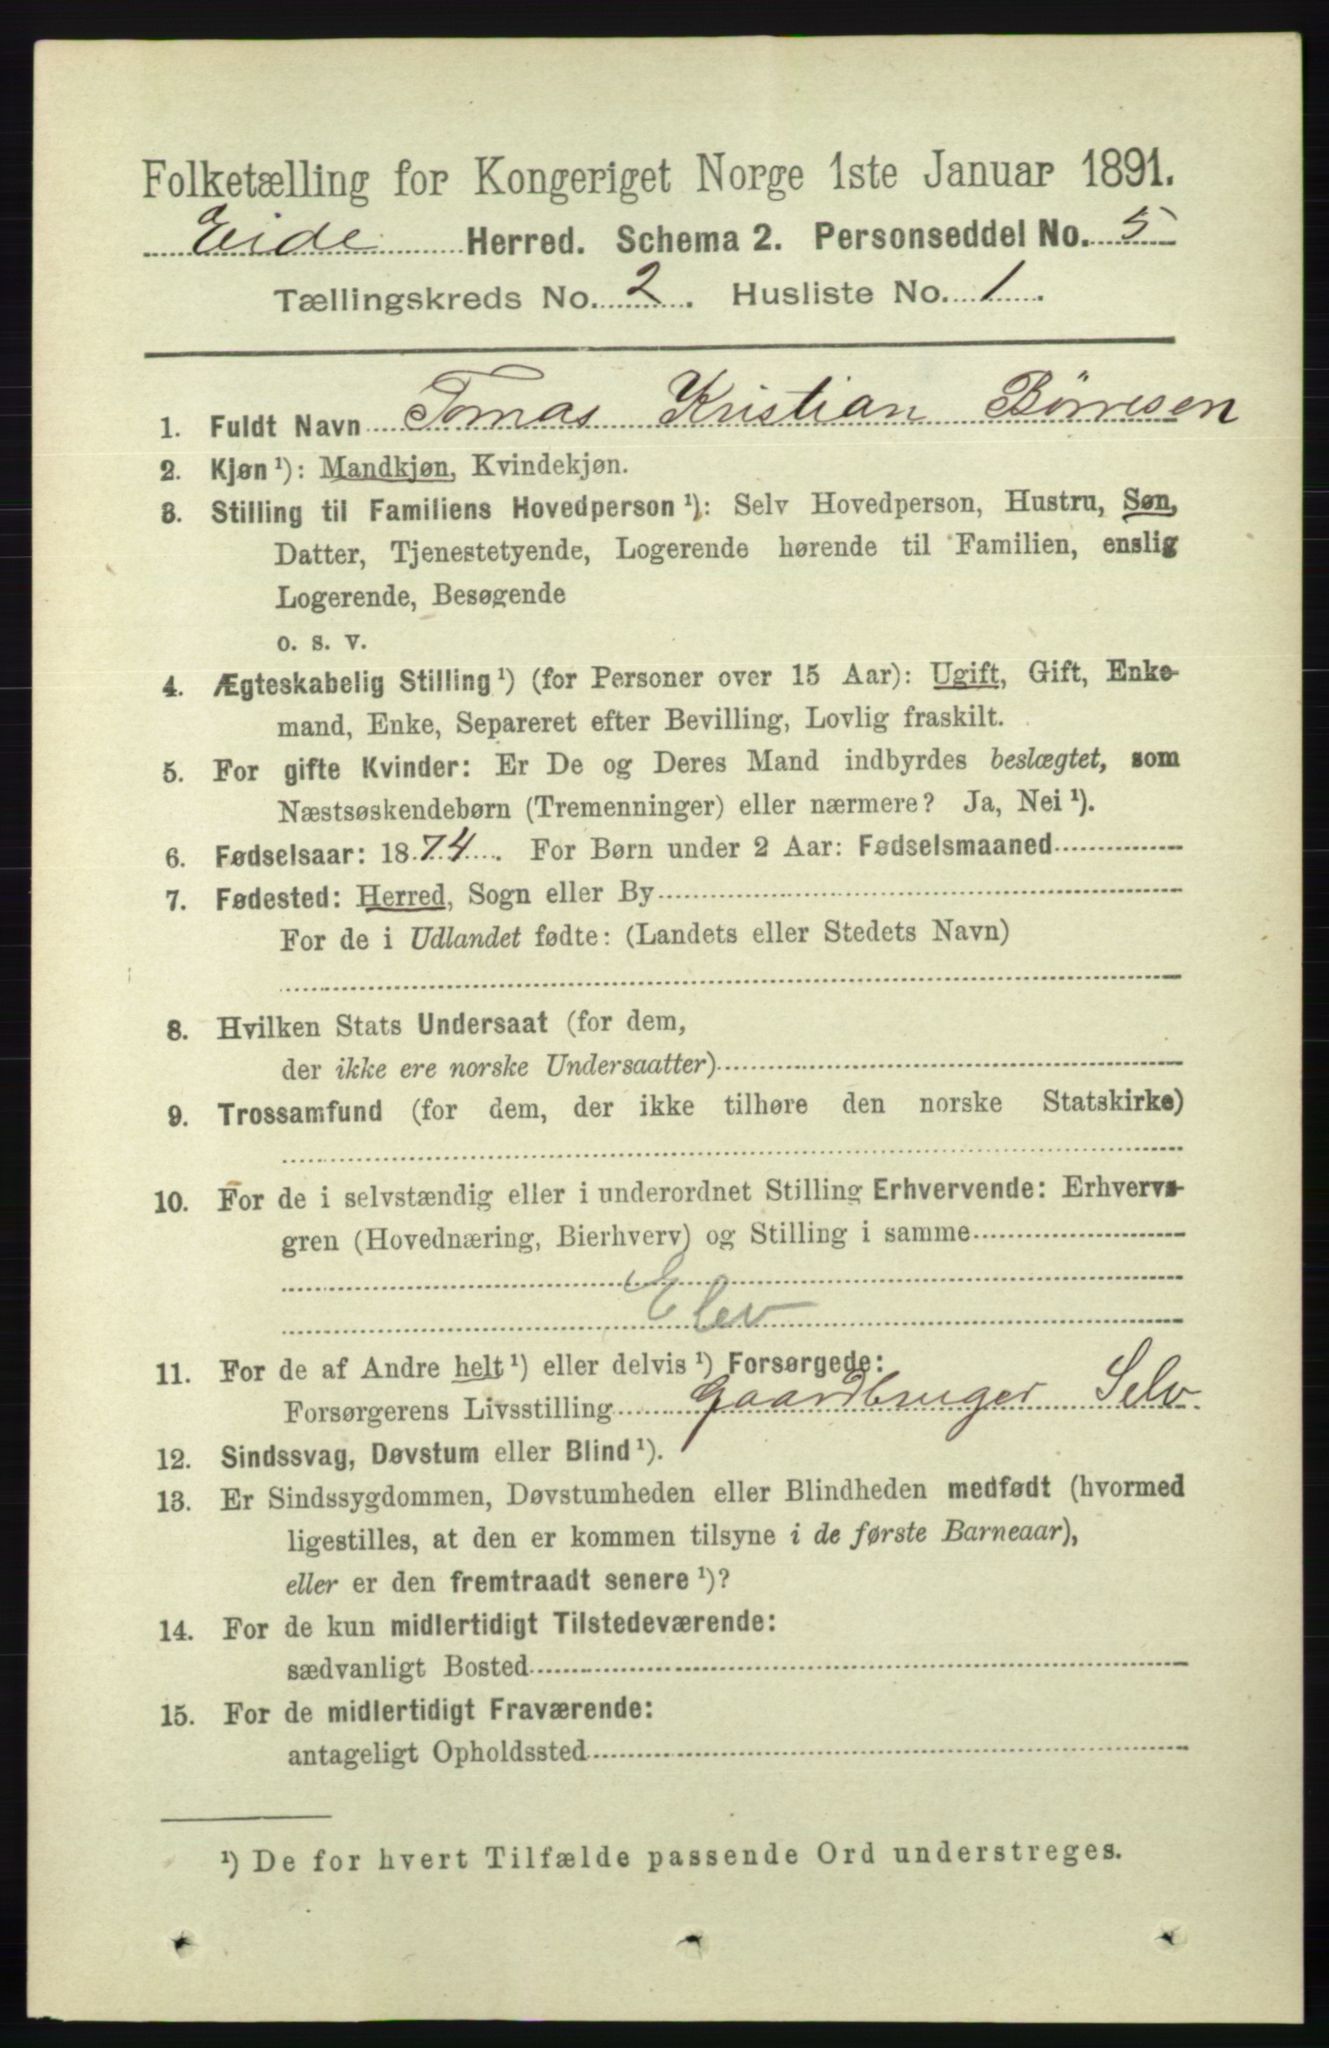 Folketælling for Kongeriget Norge 1ste Januar 1891.
Eide Herred. Schema 2. Personseddel No. 5
Tællingskreds No. 2. Husliste No. 1.
1. Fuldt Navn Tomas Kristian Börresen
2. Kjøn ¹): Mandkjøn, Kvindekjøn.
3. Stilling til Familiens Hovedperson ¹): Selv Hovedperson, Hustru, Søn,
Datter, Tjenestetyende, Logerende hørende til Familien, enslig
Logerende, Besøgende
o. s. v.
4. Ægteskabelig Stilling ¹) (for Personer over 15 Aar): Ugift, Gift, Enke-
mand, Enke, Separeret efter Bevilling, Lovlig fraskilt.
5. For gifte Kvinder: Er De og Deres Mand indbyrdes beslægtet, som
Næstsøskendebørn (Tremenninger) eller nærmere? Ja, Nei ¹).
6. Fødselsaar: 1874. For Børn under 2 Aar: Fødselsmaaned
7. Fødested: Herred, Sogn eller By
For de i Udlandet fødte: (Landets eller Stedets Navn)
8. Hvilken Stats Undersaat (for dem,
der ikke ere norske Undersaatter)
9. Trossamfund (for dem, der ikke tilhøre den norske Statskirke)
10. For de i selvstændig eller i underordnet Stilling Erhvervende: Erhvervs-
gren (Hovednæring, Bierhverv) og Stilling i samme
Elev
11. For de af Andre helt ¹) eller delvis ¹) Forsørgede:
Forsørgerens Livsstilling Gaardbruger Selv.
12. Sindssvag, Døvstum eller Blind ¹).
13. Er Sindssygdommen, Døvstumheden eller Blindheden medfødt (hvormed
ligestilles, at den er kommen tilsyne i de første Barneaar),
eller er den fremtraadt senere ¹)?
14. For de kun midlertidigt Tilstedeværende:
sædvanligt Bosted
15. For de midlertidigt Fraværende:
antageligt Opholdssted
¹) De for hvert Tilfælde passende Ord understreges.